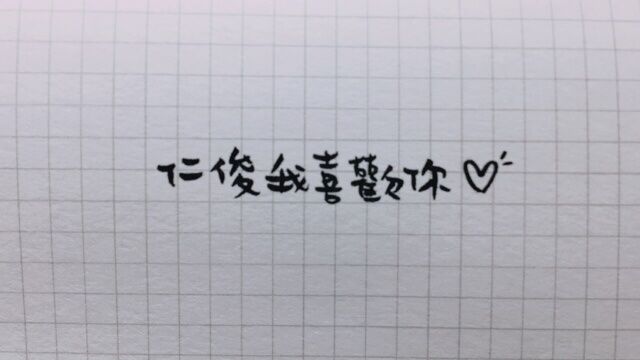 仁俊我喜歡你♡